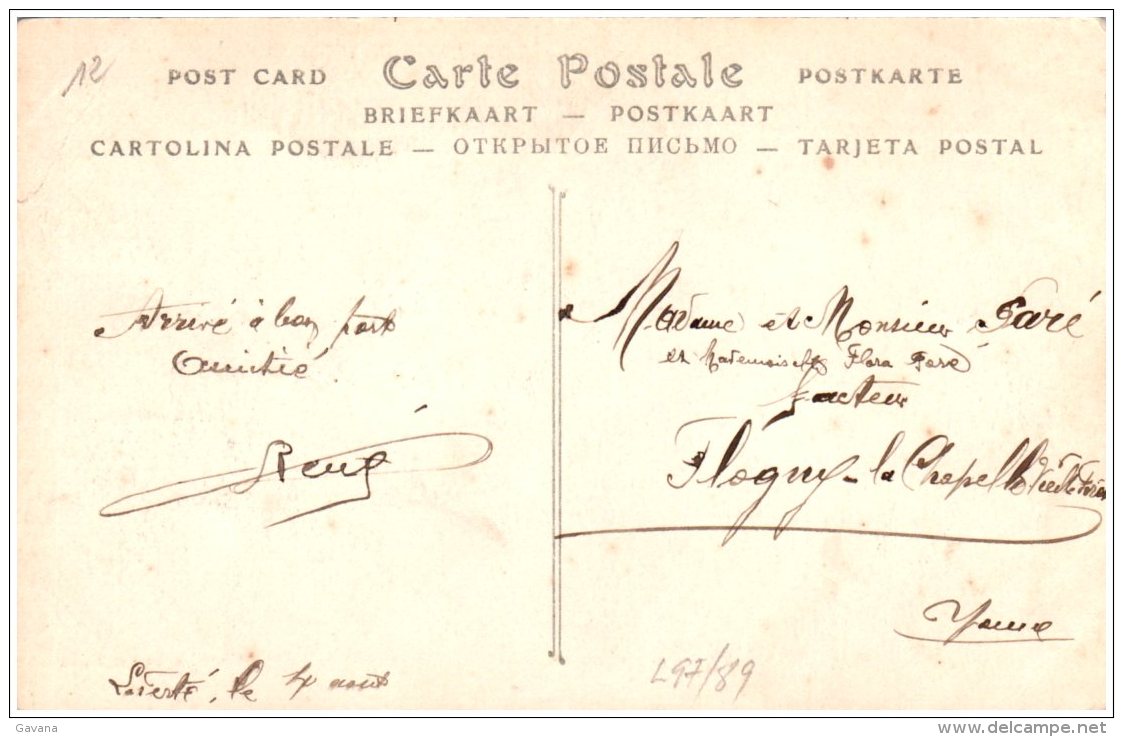 12
POST CARD Carte Postale POSTKARTE
BRIEFKAART — POSTKAART
CARTOLINA POSTALE — ОТКРЫТОЕ ПИСЬМО — TARJETA POSTAL
Arrivé à bon port
Amitié.
René
Laferté, le 4 aout
Madame et Monsieur Faré
et Mademoiselle Flora Faré
facteur
Flogny-la Chapelle
Yonne
L97/89
Gavana
www.delcampe.net